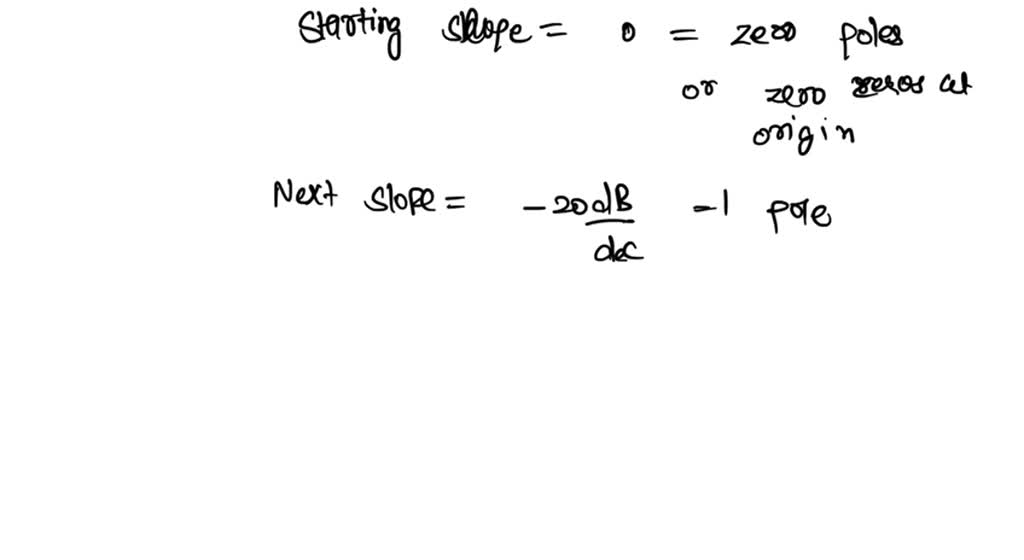 Starting slope = 0 = zero poles
or zero zeros at
origin
Next slope = -20dB/dec -1 pole